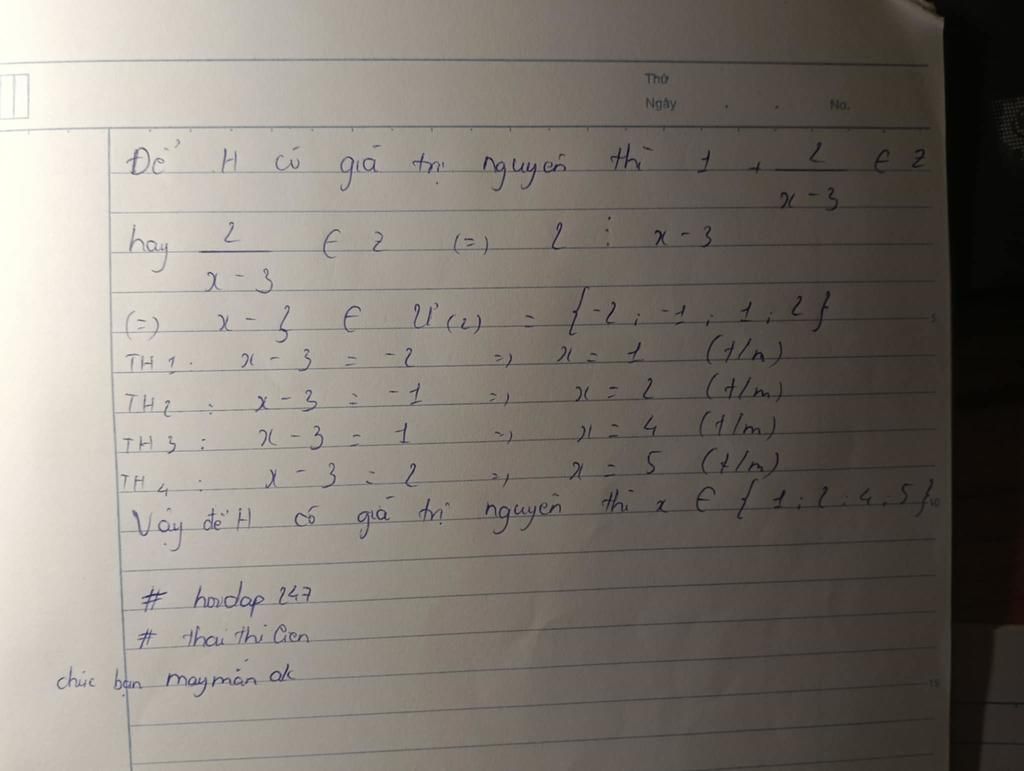 Thứ
Ngày . . No.
Để H có giá trị nguyên thì 1 + 2/(x-3) ∈ Z
hay 2/(x-3) ∈ Z (=) 2 ⋮ x-3
(=) x-3 ∈ Ư(2) = {-2; -1; 1; 2}
5
TH1: x-3 = -2 => x = 1 (t/m)
TH2: x-3 = -1 => x = 2 (t/m)
TH3: x-3 = 1 => x = 4 (t/m)
TH4: x-3 = 2 => x = 5 (t/m)
Vậy để H có giá trị nguyên thì x ∈ {1; 2; 4; 5}
10
# hoidap 247
chúc bạn may mắn ak
15